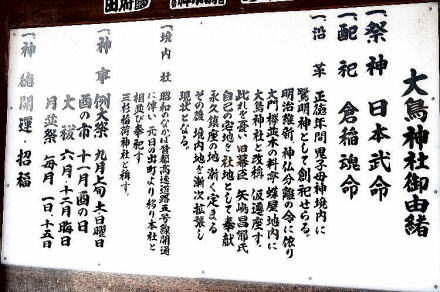 大鳥神社御由緒
一、祭神 日本武命
一、配祀 倉稲魂命
一、沿革 正徳年間鬼子母神境内に
鷲明神として創祀せらる。
明治維新、神仏分離の令に依り
大門欅並木の料亭蝶屋地内に
大鳥神社と改称仮遷座す。
此れを憂い旧幕臣矢嶋昌郁氏
自己の宅地を社地として奉献
永久鎮座の地漸く定まる
その後境内地を漸次拡張し
現状となる。
一、境内社 昭和のなかば首都高速道路五号線開通
に伴い元日の出町より移り本社と
相並び奉祀す
三杉稲荷神社と称す。
一、神事 例大祭 九月上旬土日曜日
酉の市 十一月酉の日
大祓 六月・十二月晦日
月並祭 毎月一日、十五日
一、神徳 開運・招福